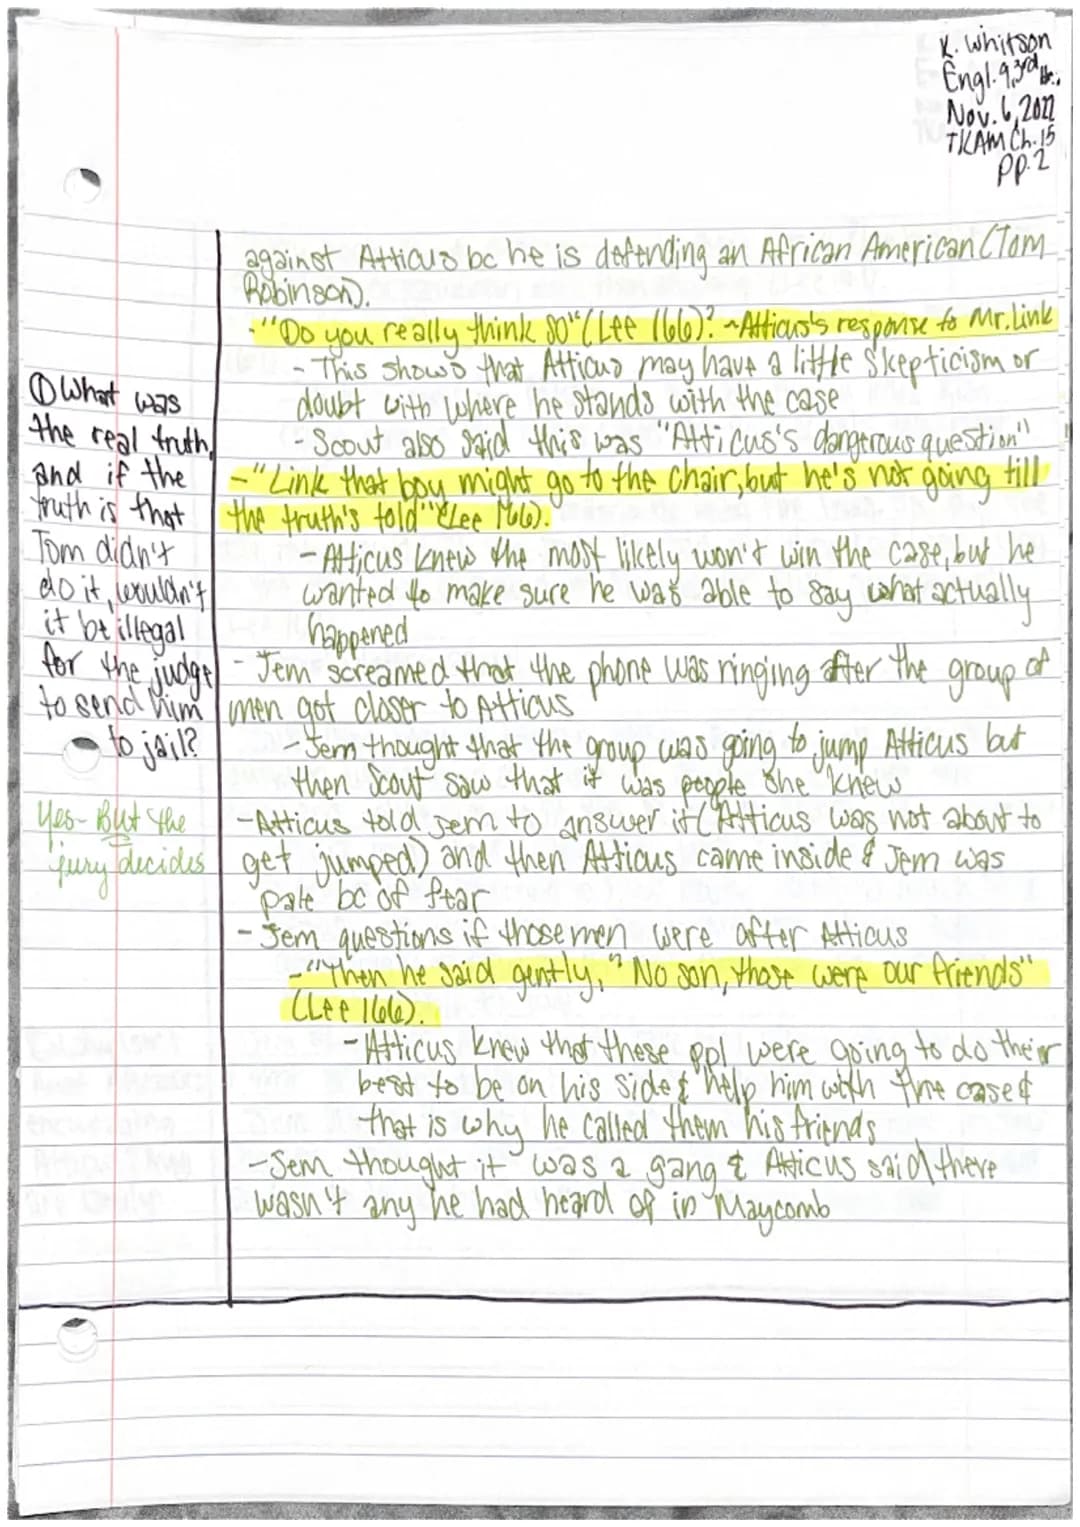 K. Whitson
Engl. 9, 3rd Hr.
Nov. 6, 2022
TKAM Ch. 15
pp. 2
against Atticus bc he is defending an African American (Tom
Robinson).
-"Do you really think so" (Lee 166)? ~Atticus's response to Mr. Link
- This shows that Atticus may have a little skepticism or
doubt with where he stands with the case
- Scout also said this was "Atticus's dangerous question"
- "Link that boy might go to the Chair, but he's not going till
the truth's told" (Lee 166).
- Atticus knew the most likely won't win the case, but he
wanted to make sure he was able to say what actually
happened
- Jem screamed that the phone was ringing after the group of
men got closer to Atticus
- Jem thought that the group was going to jump Atticus but
then Scout saw that it was people she knew
- Atticus told Jem to answer it (Atticus was not about to
get jumped) and then Atticus came inside & Jem was
pale bc of fear
- Jem questions if those men were after Atticus
- "Then he said gently," "No son, those were our friends"
(Lee 166).
- Atticus knew that these ppl were going to do their
best to be on his side & help him with the case &
that is why he called them his friends
- Jem thought it was a gang & Atticus said there
wasn't any he had heard of in Maycomb
① What was
the real truth,
and if the
truth is that
Tom didn't
do it, wouldn't
it be illegal
for the judge
to send him
to jail?
Yes- But the
jury decides